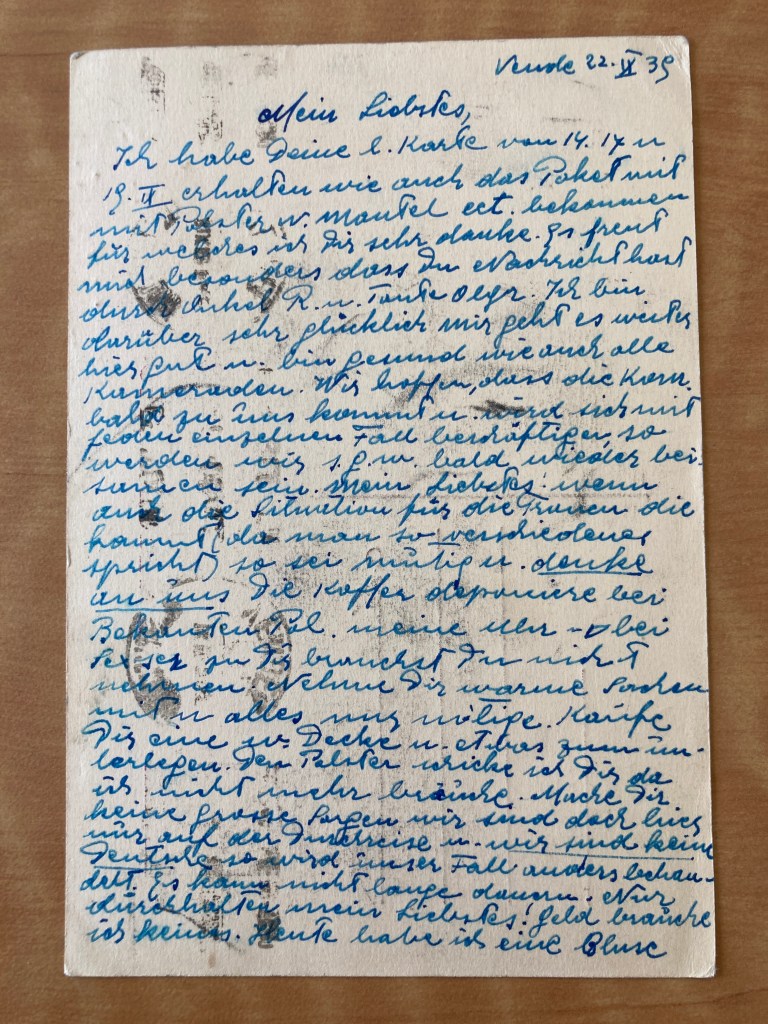 Vende 22. IX 39
Mein Liebstes,
Ich habe Deine l. Karte von 14. 17 u
19. IX erhalten wie auch das Paket mit
mit Polster W. Mantel ect. bekommen
für welches ich Dir sehr danke. Es freut
mich besonders dass Du Nachricht hast
durch Onkel R. u. Tante Olga. Ich bin
darüber sehr glücklich mir geht es weiter
hier gut u. bin gesund wie auch alle
Kameraden. Wir hoffen, dass die Kom.
bald zu uns kommt u. wird sich mit
jeden einzelnen Fall beschäftigen, so
werden wir s.g.w. bald wieder bei-
samen sein. Mein Liebstes wenn
auch die Situation für die Frauen die
kommt (da man so verschiedenes
spricht) so sei mutig u. denke
an uns Die Koffer deponiere bei
Bekanten Pol. meine Uhr bei
zu Dir brauchst Du nicht
nehmen Nehme Dir warme Sachen
mit u alles nur nötige. Kaufe
Dir eine w. Decke u. etwas zum un-
terlegen. Den Polster schicke ich Dir da
ich nicht mehr brauche. Mache Dir
keine grosse Sorgen wir sind doch hier
nur auf der Durchreise u. wir sind keine
Deutsche so wird unser Fall anders behan-
delt. Es kann nicht lange dauern. Nur
durchhalten mein Liebstes! Geld brauche
ich keines. Heute habe ich eine Bluse